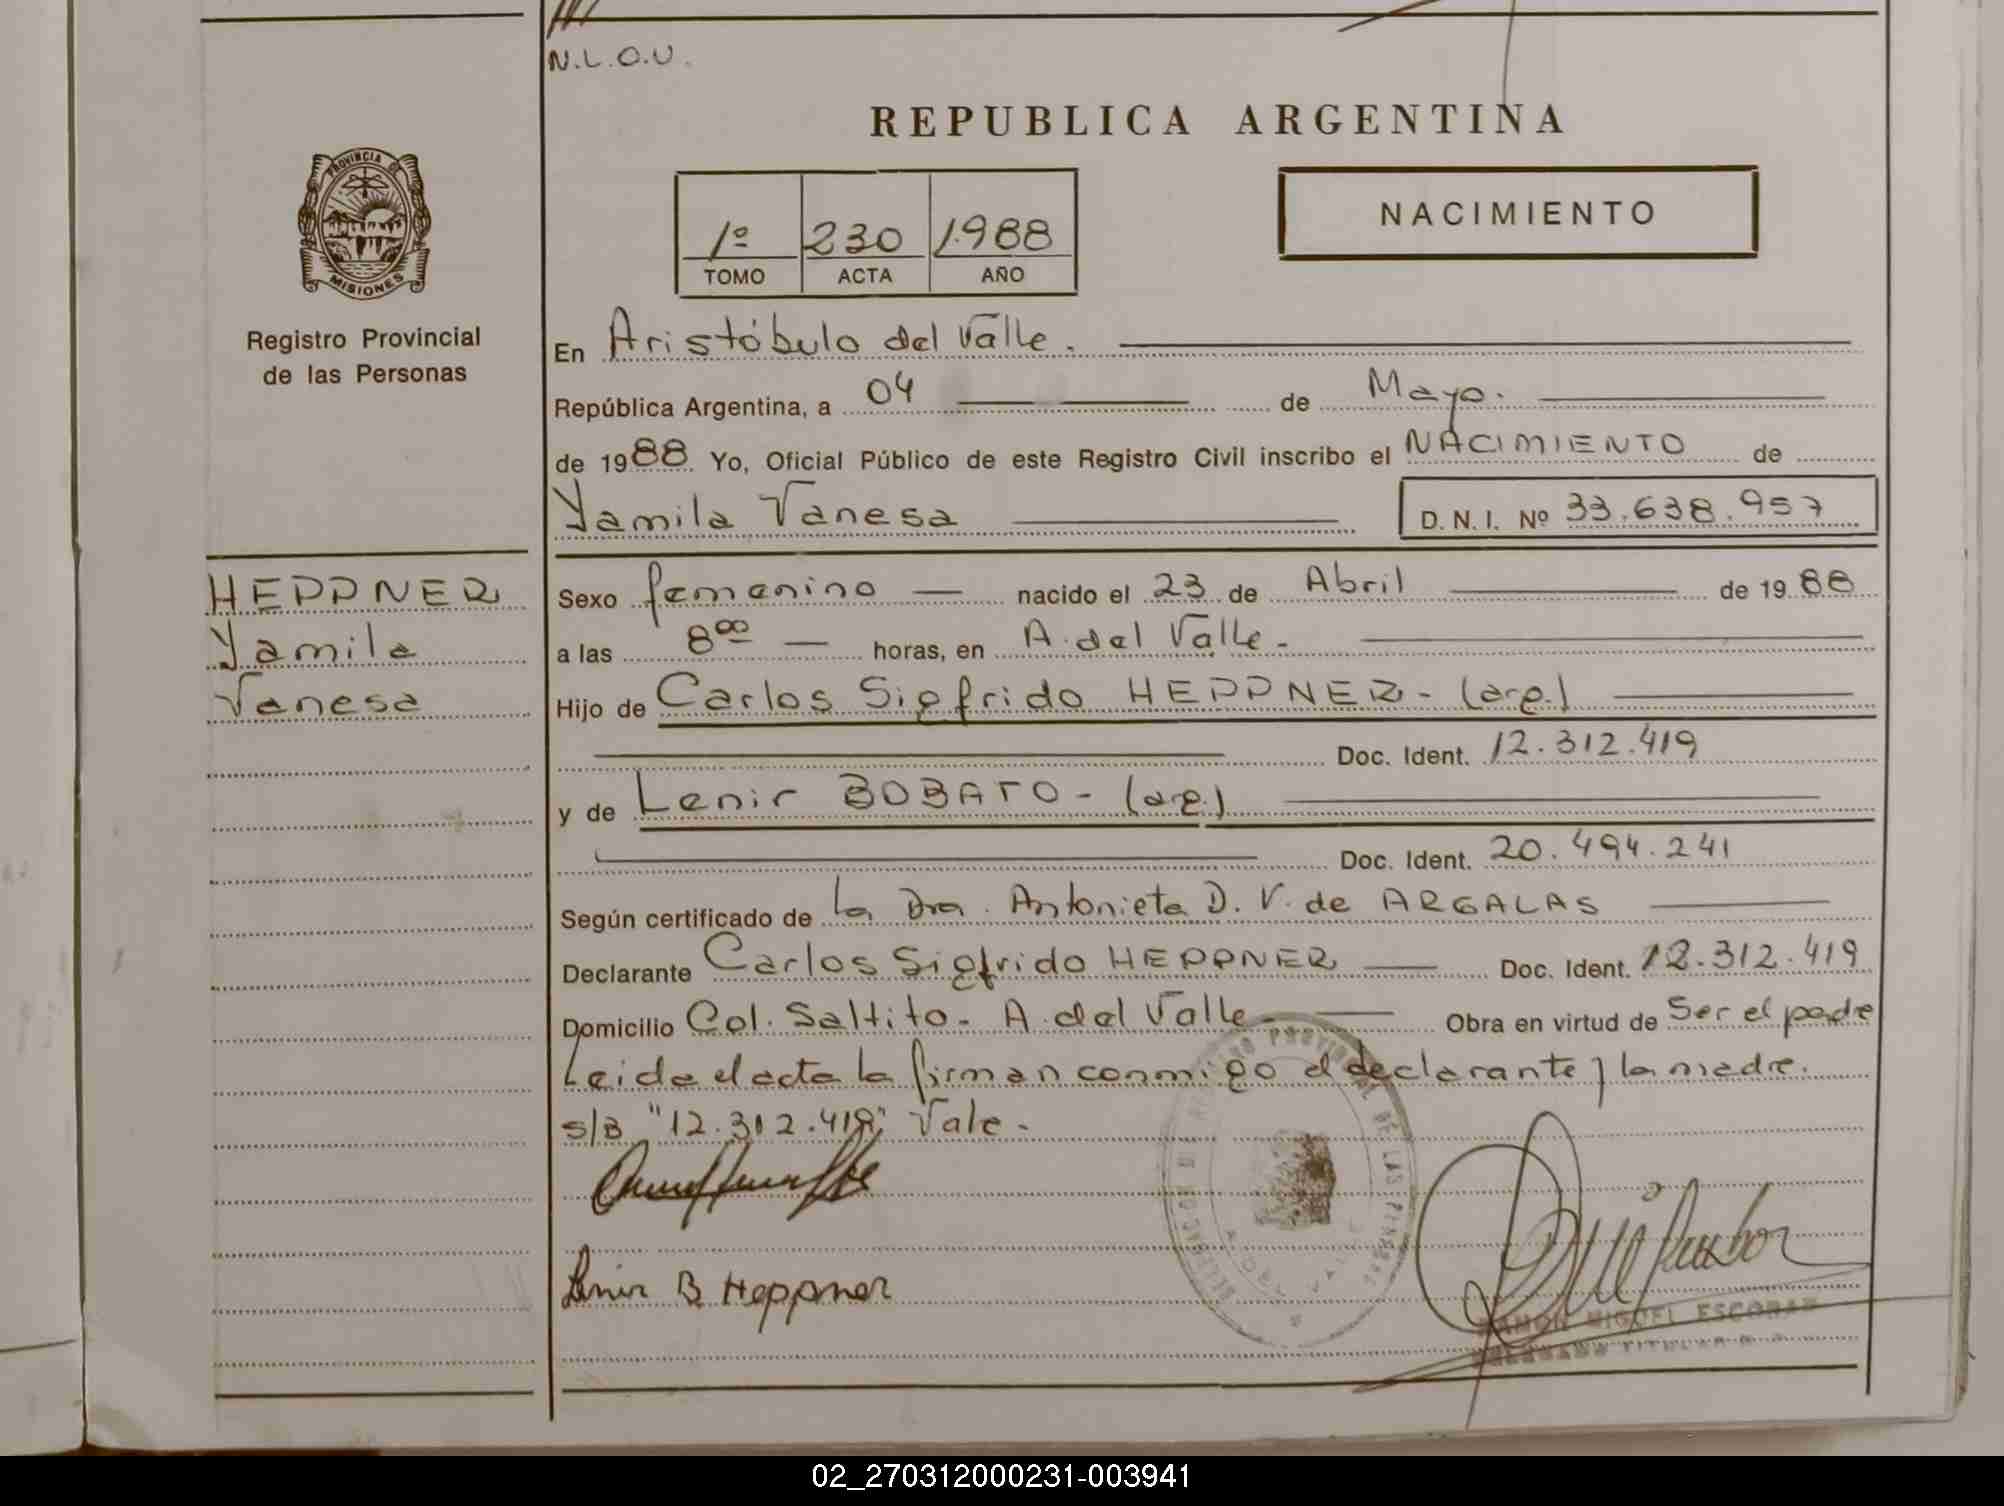 N.L.O.U.
REPUBLICA ARGENTINA
PROVINCIA DE
MISIONES
Registro Provincial
de las Personas
1º 230 1.988
TOMO ACTA AÑO
NACIMIENTO
En Aristóbulo del Valle.
República Argentina, a 04 de Mayo.
de 1988 Yo, Oficial Público de este Registro Civil inscribo el NACIMIENTO de
Yamila Vanesa D.N.I. Nº 33.638.957
HEPPNER
Yamila
Vanesa
Sexo femenino — nacido el 23 de Abril de 1988
a las 8⁰⁰ — horas, en A. del Valle -
Hijo de Carlos Sigfrido HEPPNER - (arg.)
Doc. Ident. 12.312.419
y de Lenir BOBATO - (arg.)
Doc. Ident. 20.494.241
Según certificado de la Dra. Antonieta D. V. de ARGALAS
Declarante Carlos Sigfrido HEPPNER — Doc. Ident. 12.312.419
Domicilio Col. Saltito - A. del Valle - Obra en virtud de Ser el padre
Leida el acta la firman conmigo el declarante y la madre.
s/B "12.312.419" Vale -
Lenir B Heppner
RAMON MIGUEL ESCOBAR
02_270312000231-003941